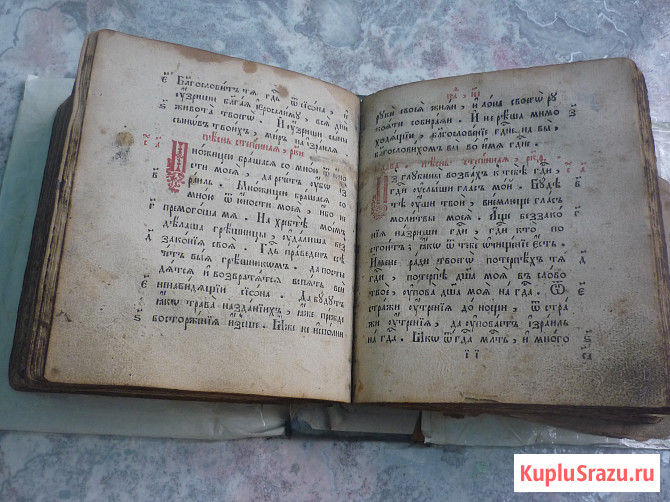 Благословитъ тѧ гдь ѿ сїѡна, и
ѹзриши благаѧ їерⷭ҇лимꙋ, всѧ дни
живота твоегѡ. И ѹзриши сыны
сыновъ твоихъ, миръ на їзраилѧ
пѣснь степеннаѧ, рки
Множицею брашасѧ со мною ѿ юно
сти моеѧ, да речетъ ѹбѡ
їзраиль. Множицею брашасѧ со
мною ѿ юности моеѧ, ибо не
премогоша мѧ. На хребтѣ моемъ
дѣлаша грѣшницы, ѹдалиша без
законїѧ своѧ. Гдь праведенъ се
четъ выѧ грѣшникомъ. да посты
дѧтсѧ и возвратѧтсѧ вспѧть вси
ненавидѧщїи сїѡна. Да будутъ
ꙗкѡ трава на зданїихъ, ꙗже прежде
восторженїѧ изсше. Еѧже не исполни
руки своеѧ жнѧи, и лона своегѡ ру
коѧти собираѧи. И не рѣша мимо
ходѧщїи, благословенїе гдне на вы,
благословихомъ вы во имѧ гдне.
пѣснь степеннаѧ, ркѳ
Из глубины возвахъ к тебѣ гди,
гди ѹслыши гласъ мой. Будѣ
тѣ ѹши твои, внемлюще гласъ
молитвы моеѧ. Аще беззако
нїѧ назриши гди, гди кто по
стоитъ; ꙗкѡ ѿ тебе ѡчищенїе есть.
Имене ради твоегѡ потерпѣхъ тѧ
гди, потерпѣ дша моѧ въ слово
твое, ѹпова дша моѧ на гда. Ѿ
стражи ѹтренїѧ до нощи, ѿ стра
жи ѹтренїѧ, да ѹповаетъ їзраиль
на гда. Ꙗкѡ ѿ гда млть, и много
KupluSrazu.ru